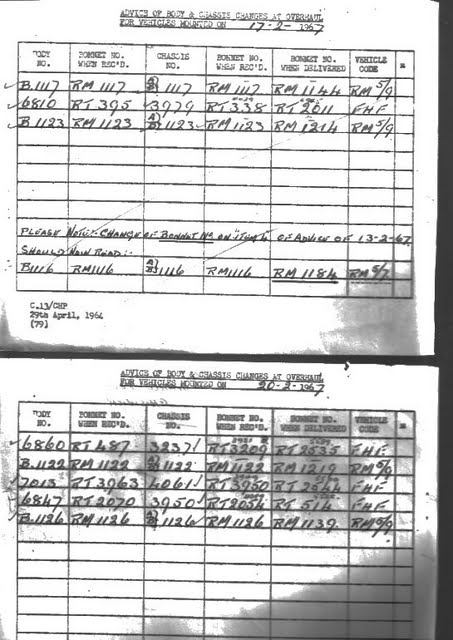 ADVICE OF BODY & CHASSIS CHANGES AT OVERHAUL
FOR VEHICLES MOUNTED ON 17-2-1967
BODY NO. BONNET NO. WHEN REC'D. CHASSIS NO. BONNET NO. WHEN REC'D. BONNET NO. WHEN DELIVERED VEHICLE CODE
B.1117 RM 1117 A/B 1117 RM 1117 RM 1144 RM 5/9
6810 RT 395 3979 RT 338 RT 2011 FHF
B.1123 RM 1123 A/B 1123 RM 1123 RM 1214 RM 5/9
PLEASE NOTE:- CHANGE OF BONNET No ON "ITEM 4" OF ADVICE OF 13-2-67
SHOULD NOW READ:-
B1116 RM1116 A/B 1116 RM1116 RM 1184 RM 5/7
C.13/CHP
29th April, 1964
(79)
ADVICE OF BODY & CHASSIS CHANGES AT OVERHAUL
FOR VEHICLES MOUNTED ON 20-2-1967
BODY NO. BONNET NO. WHEN REC'D. CHASSIS NO. BONNET NO. WHEN REC'D. BONNET NO. WHEN DELIVERED VEHICLE CODE
6860 RT 487 3237 RT 3209 RT 2535 FHF
B.1122 RM 1122 A/B 1122 RM 1122 RM 1219
7013 RT 3963 4061 RT 3950 RT 2544 FHF
6847 RT 2070 3950 RT 2054 RT 514 FHF
B.1126 RM 1126 A/B 1126 RM 1126 RM 1139. RM 5/9